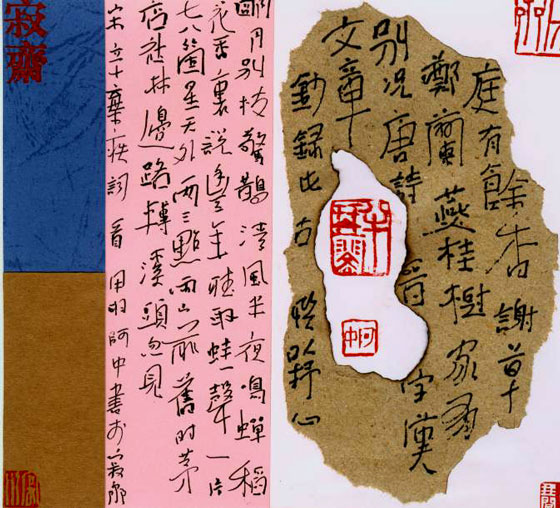 庭有餘香謝草
鄭蘭燕桂樹家無
別況唐詩晉字漢
文章
錄此古聯以抒心
阿中
明月別枝驚鵲清風半夜鳴蟬稻
花香裏說豐年聽取蛙聲一片
七八箇星天外兩三點雨山前舊時茅
店社林邊路轉溪頭忽見
宋辛棄疾詞一首 阿中書於寂齋
寂齋